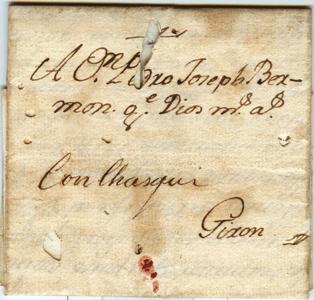 A Dn Pedro Joseph Ber-
mon. qe Dios ms as
Con Chasqui
Piron